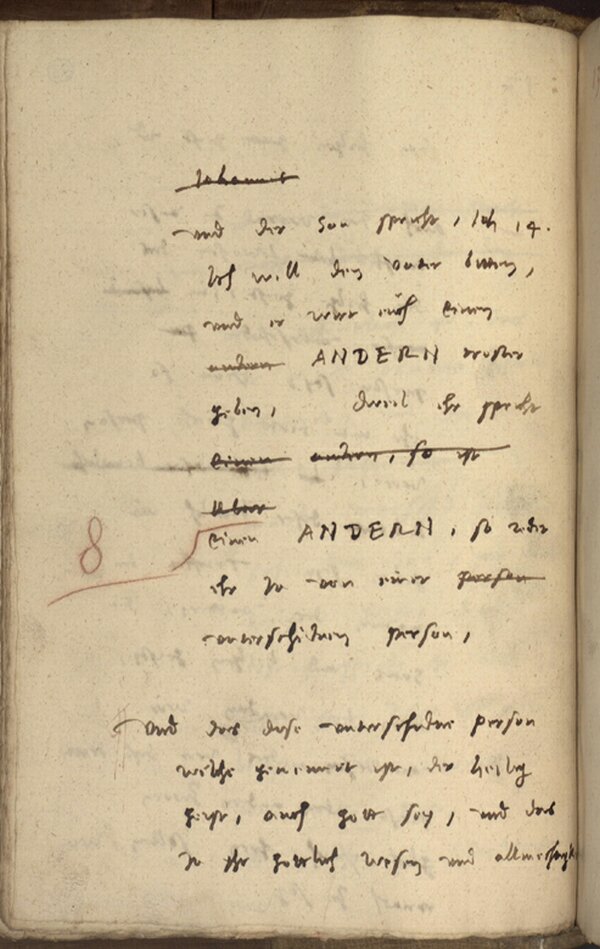 Johannis
und der Son spricht, Joh 14.
Ich will den vater bitten,
und er wirt euch einen
andern ANDERN troster
geben, dweil ehr spricht
einen andern, so ist
Aber
einen ANDERN, so redet
8
ehr jo von einer person
unterschidnen person,
Und das dise unterschidne person
welche genennet ist, der heilig
geist, auch gott sey, und das
jn yhr gottlich wesen und allmechtik